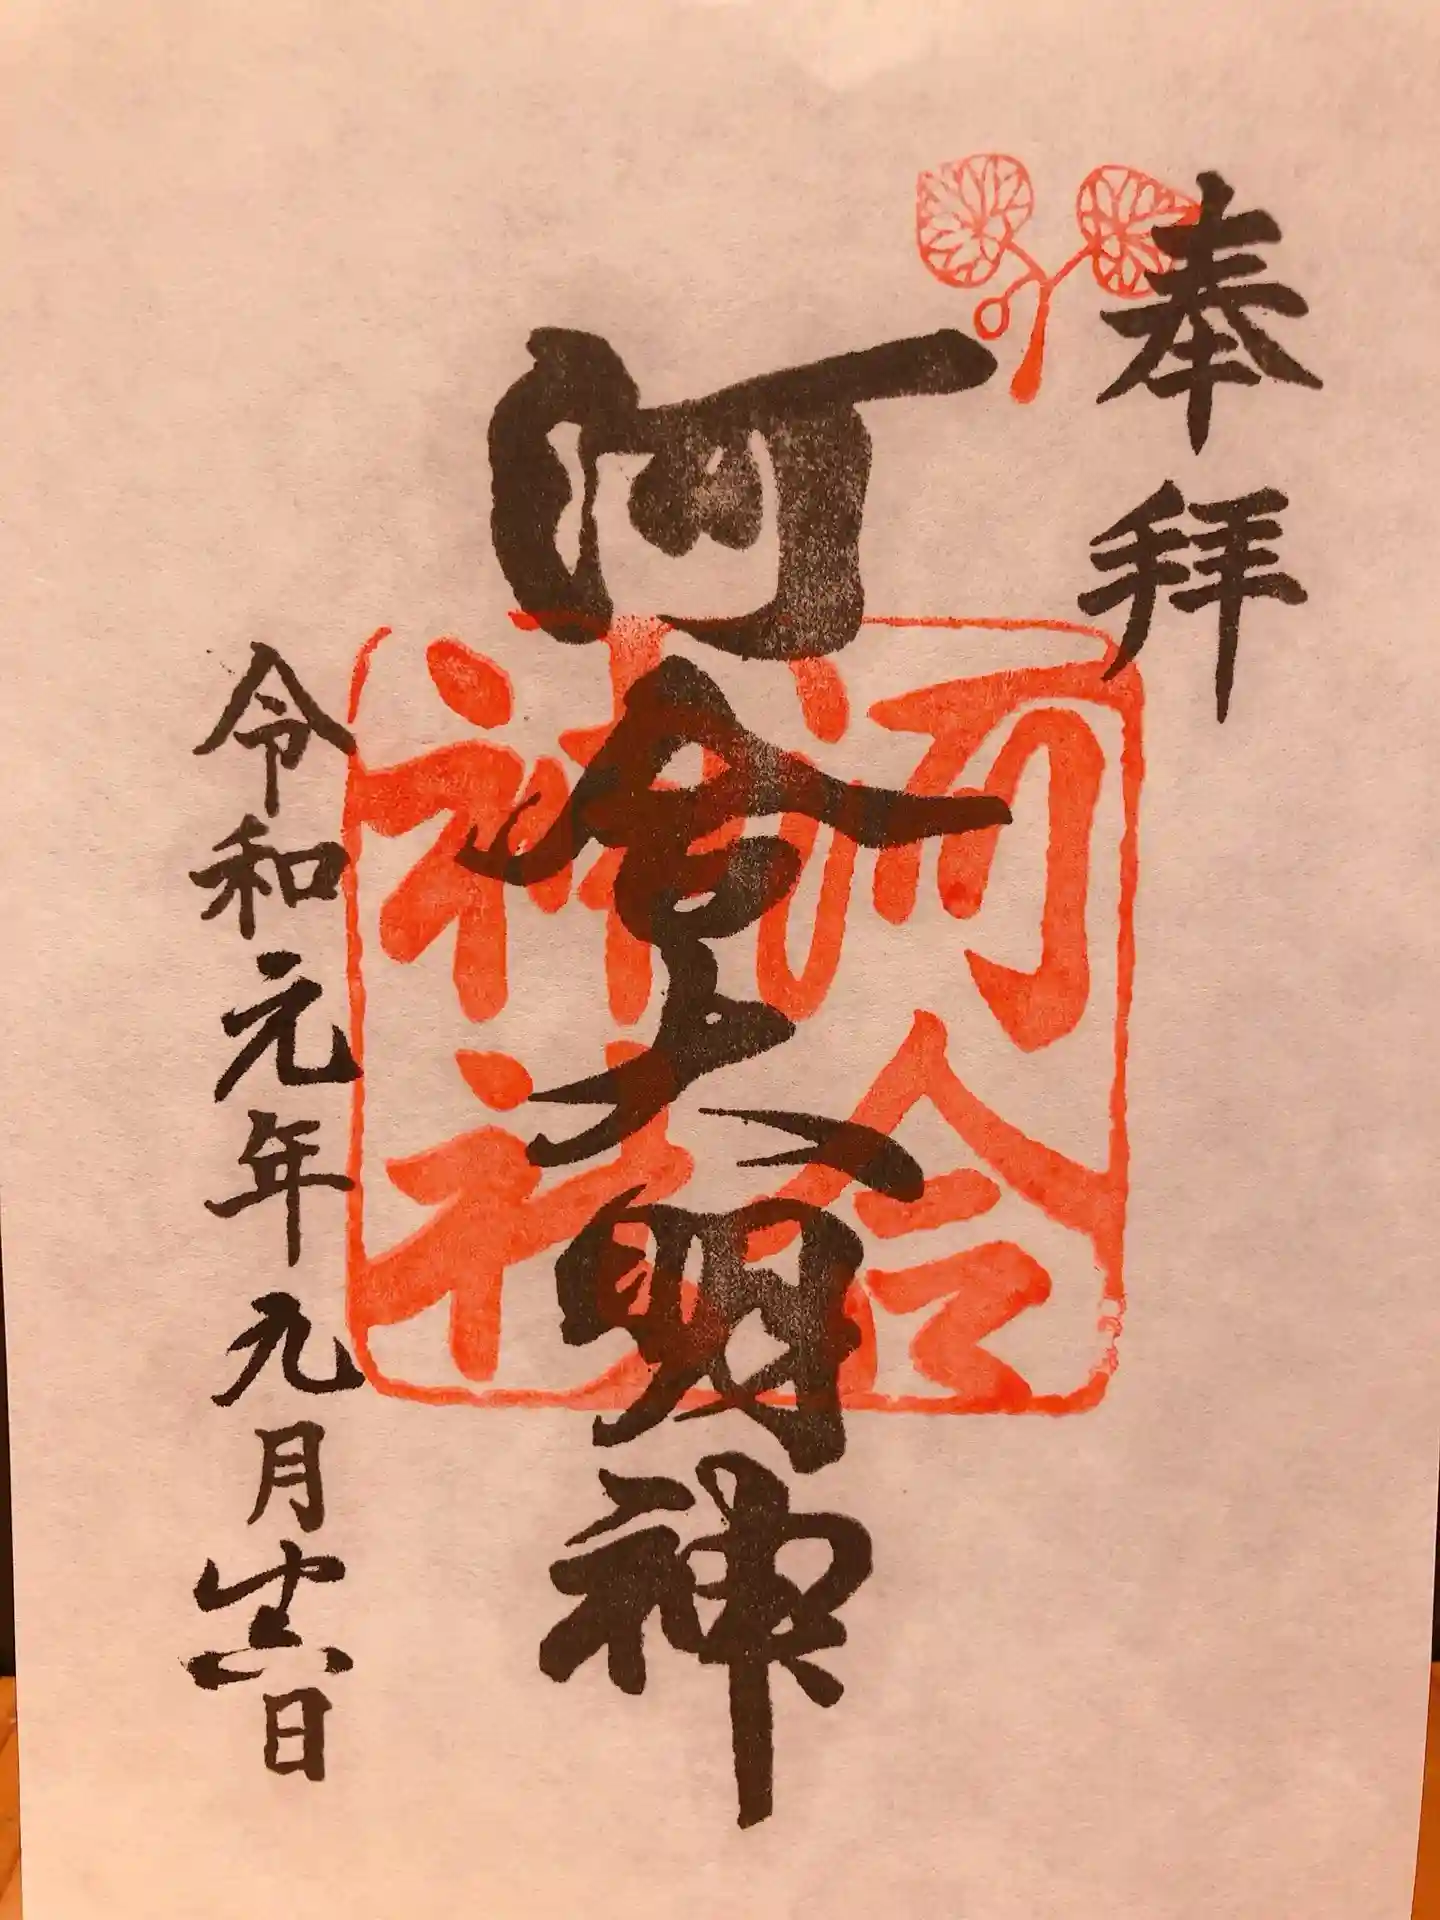 奉拝
河合大明神
河合神社
令和元年九月廿六日